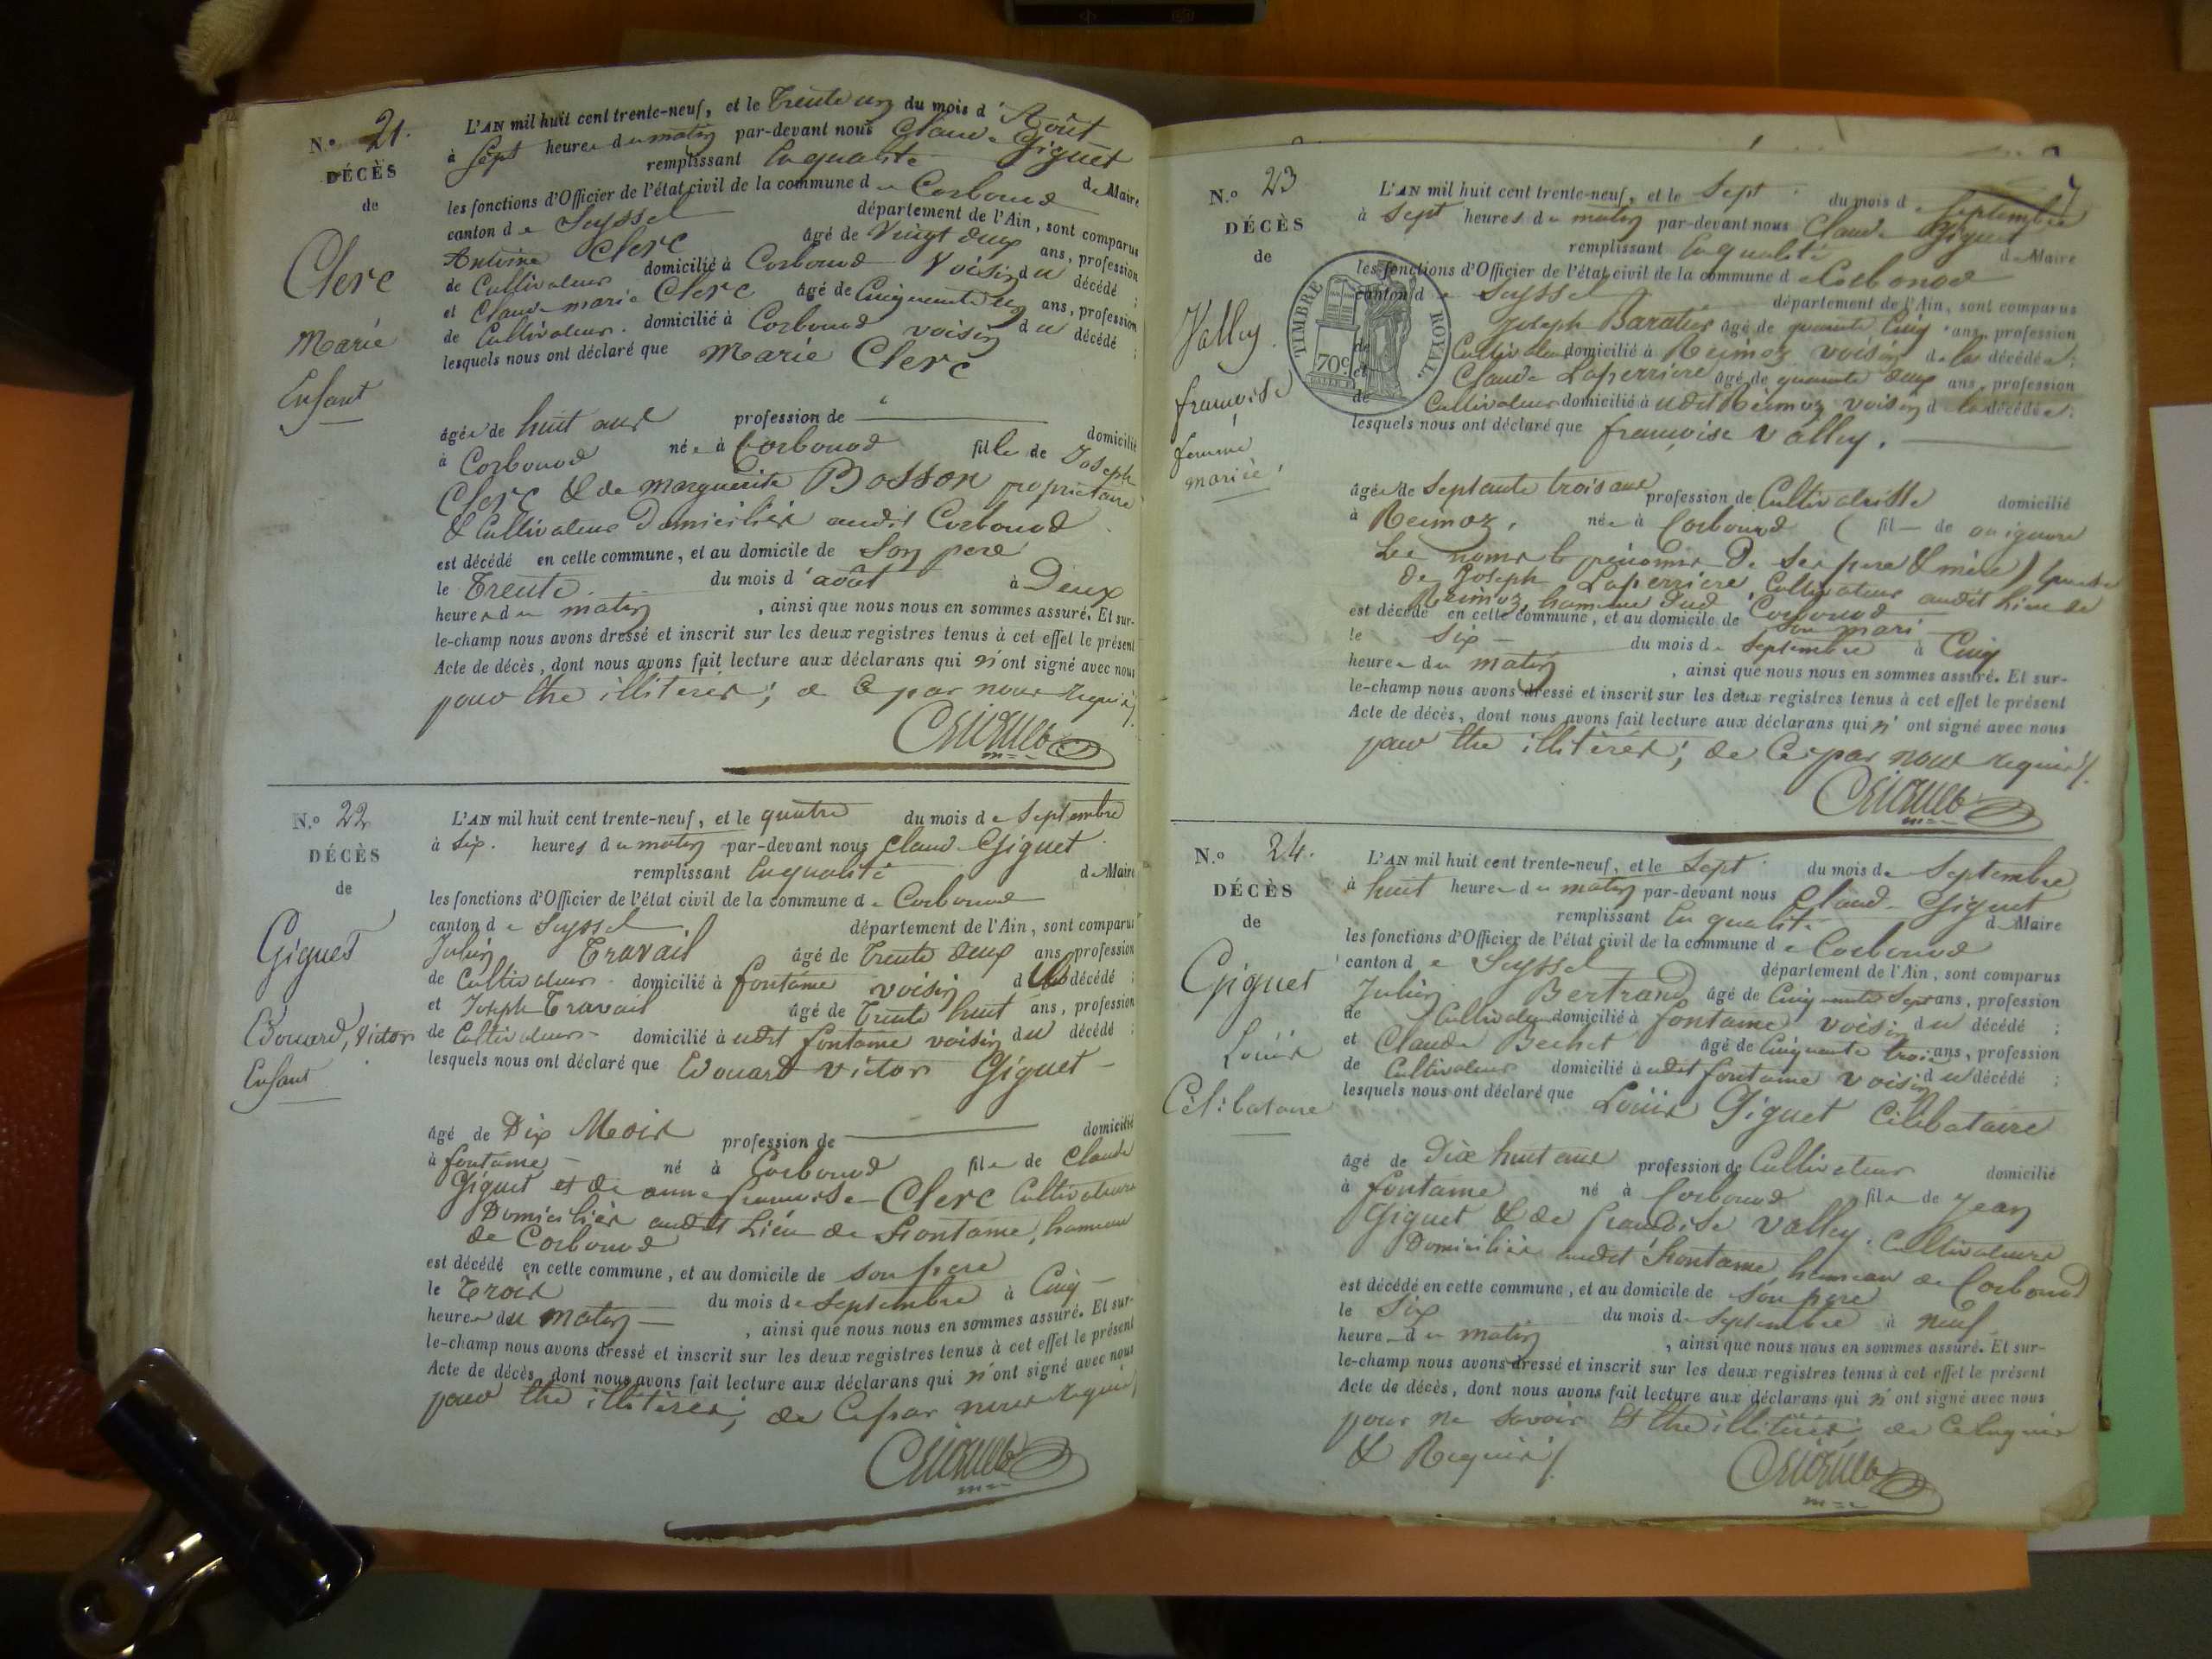 N.o 21.
DÉCÈS
de
Clerc
Marie
Enfant
L'AN mil huit cent trente-neuf, et le Trente un du mois d'Août
à Sept heures du matin par-devant nous Claude Giguet
remplissant en qualité de Maire
les fonctions d'Officier de l'état civil de la commune de Corbonod
canton de Seyssel département de l'Ain, sont comparus
Antoine Clerc âgé de Vingt deux ans, profession
de Cultivateur domicilié à Corbonod Voisin du décédé ;
et Claude marie Clerc âgé de Cinquante un ans, profession
de Cultivateur. domicilié à Corbonod voisin du décédé ;
lesquels nous ont déclaré que Marie Clerc
âgée de huit ans profession de domicilié
à Corbonod née à Corbonod fille de Joseph
Clerc & de marguerite Bosson proprietaire
& Cultivateurs Domiciliés audit Corbonod
est décédé en cette commune, et au domicile de Son pere
le Trente du mois d'août à Deux
heures du matin , ainsi que nous nous en sommes assuré. Et sur-
le-champ nous avons dressé et inscrit sur les deux registres tenus à cet effet le présent
Acte de décès, dont nous avons fait lecture aux déclarans qui n'ont signé avec nous
pour être illiterés ; de ce par nous requis /.
N.o 22
DÉCÈS
de
Giguet
Edouard, Victor
Enfant
L'AN mil huit cent trente-neuf, et le quatre du mois de Septembre
à Six. heures du matin par-devant nous Claude Giguet
remplissant en qualité de Maire
les fonctions d'Officier de l'état civil de la commune de Corbonod
canton de Seyssel département de l'Ain, sont comparus
Julien Travail âgé de Trente deux ans, profession
de Cultivateur domicilié à fontaine voisin du décédé ;
et Joseph Travail âgé de Trente huit ans, profession
de Cultivateur domicilié à udit fontaine voisin du décédé ;
lesquels nous ont déclaré que Edouard victor Giguet
âgé de Dix Mois profession de domicilié
à fontaine né à Corbonod fils de Claude
Giguet et de anne francoise Clerc Cultivateurs
Domiciliés audit Lieu de Fontaine, hameau
de Corbonod
est décédé en cette commune, et au domicile de son pere
le Trois du mois de Septembre à Cinq
heures du matin , ainsi que nous nous en sommes assuré. Et sur-
le-champ nous avons dressé et inscrit sur les deux registres tenus à cet effet le présent
Acte de décès, dont nous avons fait lecture aux déclarans qui n'ont signé avec nous
pour être illiterés ; de ce par nous requis /
N.o 23
DÉCÈS
de
Valley.
françoise
femme
mariée
7
TIMBRE ROYAL
70c
L'AN mil huit cent trente-neuf, et le Sept du mois de Septembre
à Sept heures du matin par-devant nous Claude Giguet
remplissant en qualité de Maire
les fonctions d'Officier de l'état civil de la commune de Corbonod
canton de Seyssel département de l'Ain, sont comparus
Joseph Baratier âgé de quarante Cinq ans, profession
de Cultivateur domicilié à Reimoz voisin de la décédée ;
et Claude Laperriere âgé de quarante deux ans, profession
de Cultivateur domicilié à udit Reimoz voisin de la décédée ;
lesquels nous ont déclaré que françoise Valley.
âgée de Septante trois ans profession de Cultivatrisse domicilié
à Reimoz, née à Corbonod ( fil de on ignore
Les noms & prénoms de ses pere & mère)
de Joseph Laperriere, Cultivateur audit Lieu de
Reimoz, hameau dud. Corbonod
est décédé en cette commune, et au domicile de son mari
le Six du mois de Septembre à Cinq
heures du matin , ainsi que nous nous en sommes assuré. Et sur-
le-champ nous avons dressé et inscrit sur les deux registres tenus à cet effet le présent
Acte de décès, dont nous avons fait lecture aux déclarans qui n'ont signé avec nous
pour être illitérés ; de ce par nous requis /.
N.o 24.
DÉCÈS
de
Giguet
Louis
Célibataire
L'AN mil huit cent trente-neuf, et le Sept du mois de Septembre
à huit heures du matin par-devant nous Claude Giguet
remplissant en qualité de Maire
les fonctions d'Officier de l'état civil de la commune de Corbonod
canton de Seyssel département de l'Ain, sont comparus
Julien Bertrand âgé de Cinquante Sept ans, profession
de Cultivateur domicilié à fontaine voisin du décédé ;
et Claude Bechet âgé de Cinquante trois ans, profession
de Cultivateur domicilié à udit fontaine voisin du décédé ;
lesquels nous ont déclaré que Louis Giguet Célibataire
âgé de Dix huit ans profession de Cultivateur domicilié
à fontaine né à Corbonod fils de Jean
Giguet & de françoise Valley. Cultivateurs
Domiciliés audit Fontaine, hameau de Corbonod
est décédé en cette commune, et au domicile de son pere
le Six du mois de Septembre à neuf
heures du matin , ainsi que nous nous en sommes assuré. Et sur-
le-champ nous avons dressé et inscrit sur les deux registres tenus à cet effet le présent
Acte de décès, dont nous avons fait lecture aux déclarans qui n'ont signé avec nous
pour ne savoir & être illitérés de ce
& Requis /.